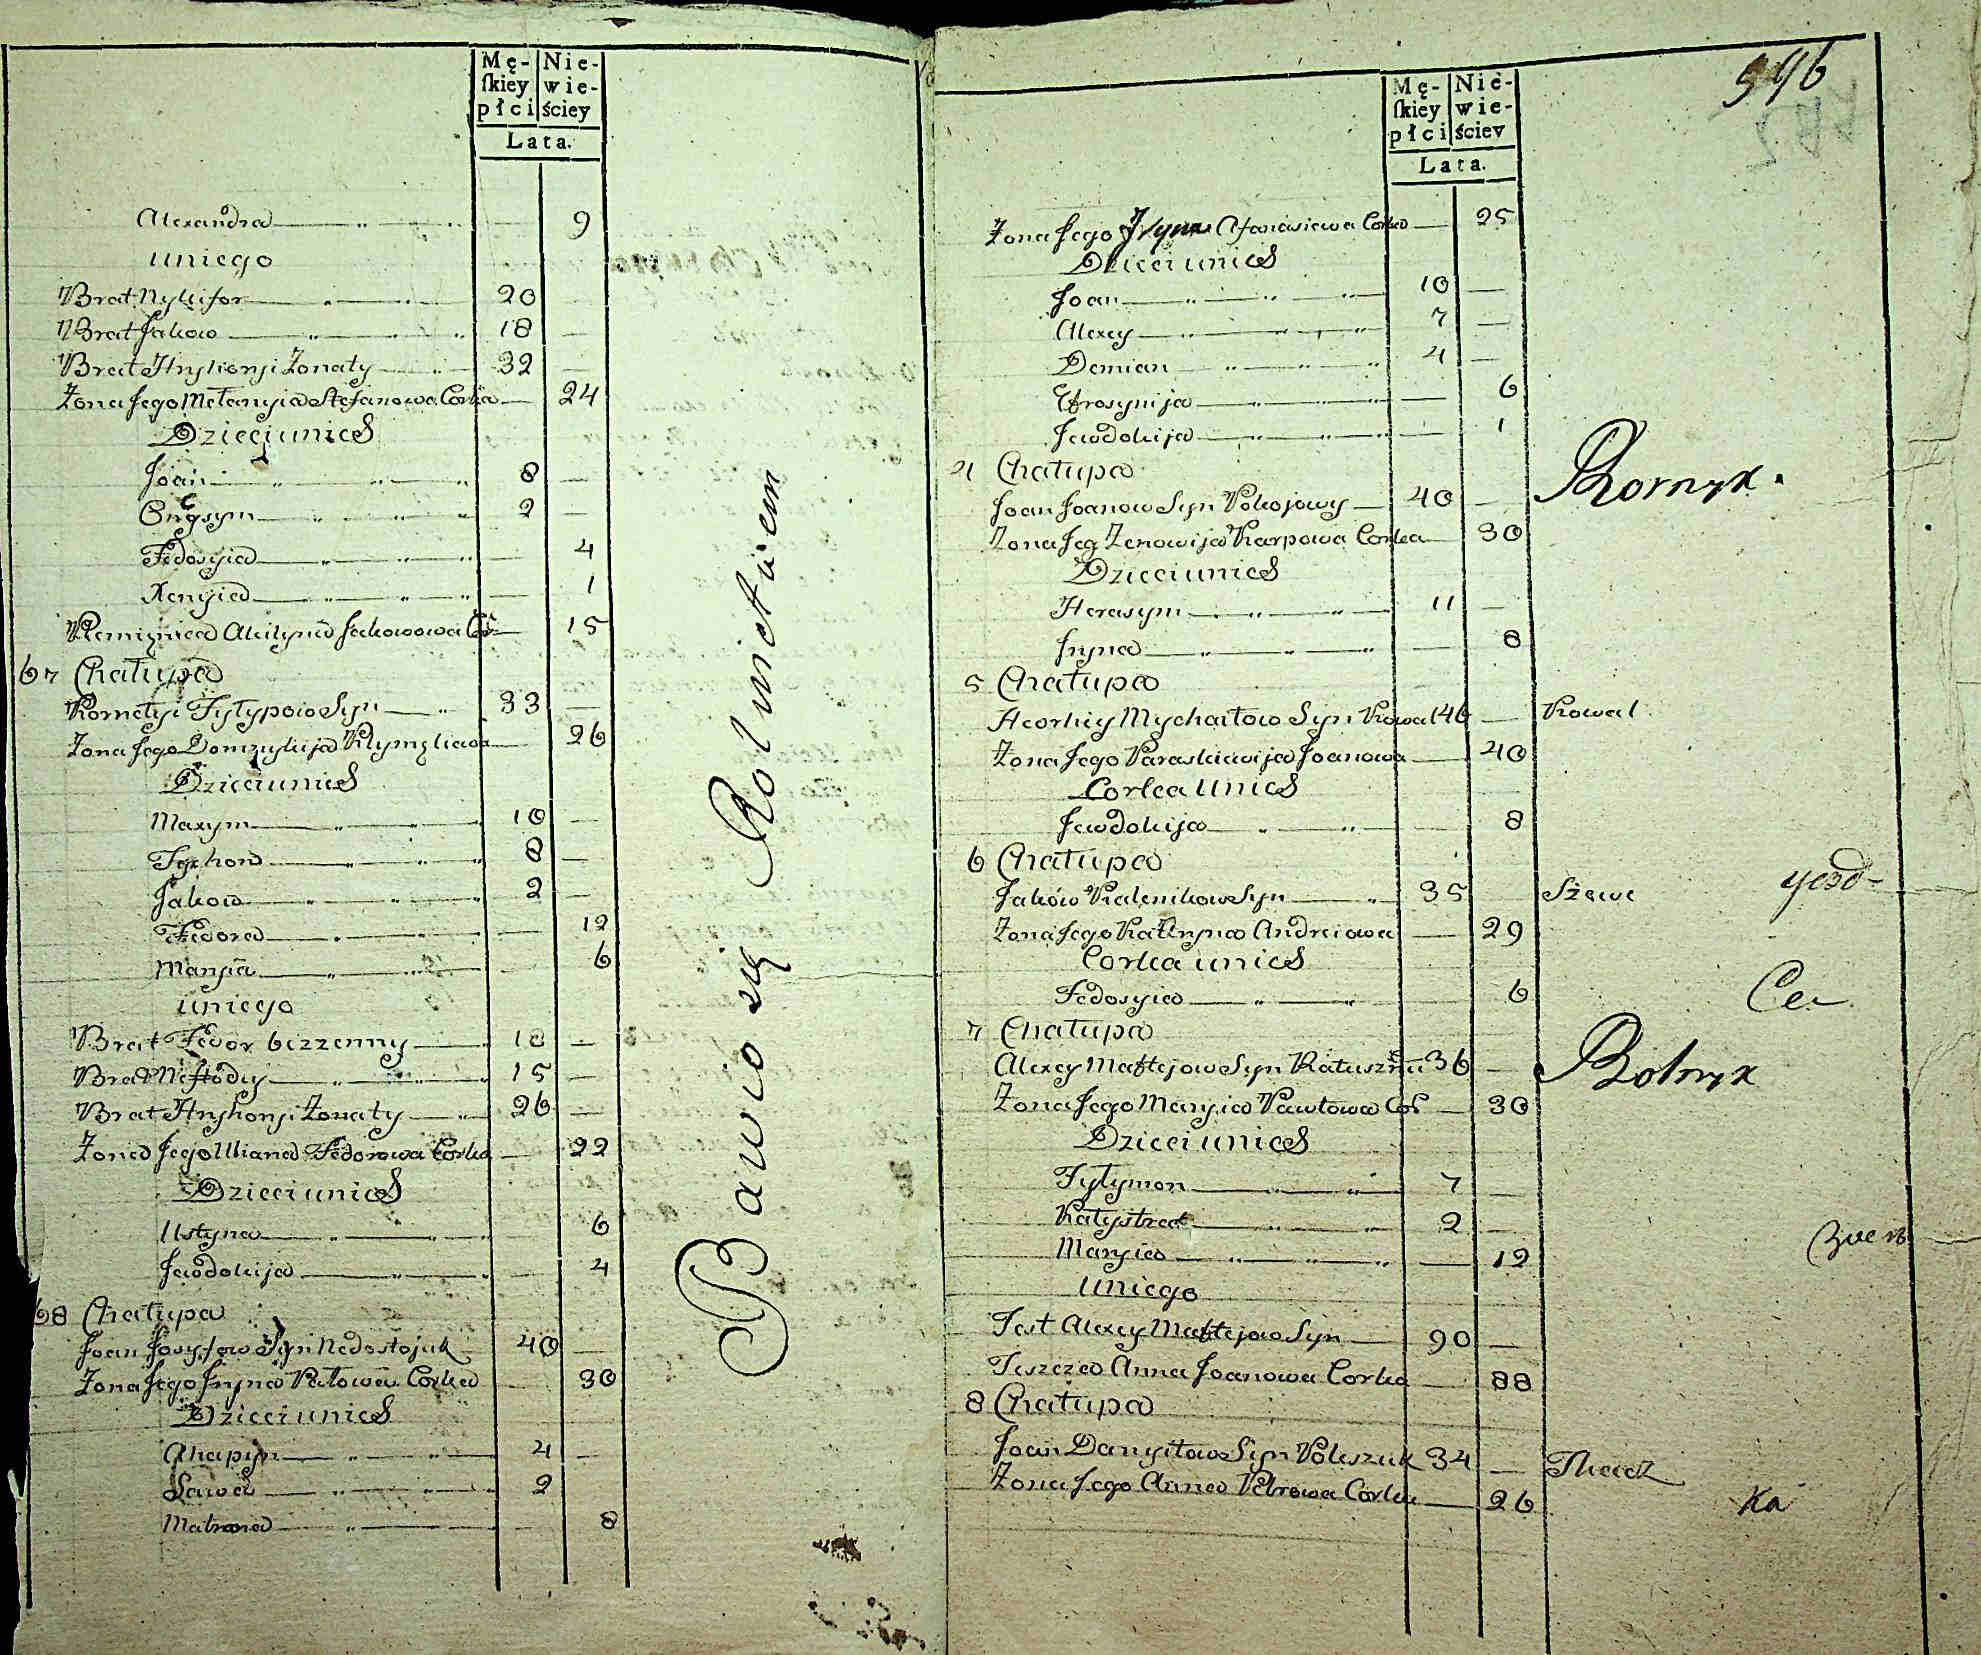 Mę- Nie-
ſkiey wie-
płci ściey
Lata.
Alexandra 9
uniego
Brat Nykifor 20
Brat Jakow 18
Brat Hryhoryi Zonaty 32
Zona Jego Melanyia Stefanowa Corka 24
Dzieci unich
Joan 8
Onysym 2
Fedosyia 4
Xenyia 1
Akilyna Jakowowa 15
67 Chałupa
Kornełyi Fyłypow Syn 33
Zona Jego 26
Dzieci unich
Maxym 10
Tychon 8
Jakow 2
Fedora 12
Maryia 6
uniego
Brat Fedor bezzenny 18
Brat Meftodey 15
Brat Hryhoryi Zonaty 26
Zona Jego Uliana Fedorowa Corka 22
Dzieci unich
Ustyna 6
Jewdokija 4
68 Chałupa
Joan Josyfow Syn Nedostojuk 40
Zona Jego Iryna Corka 30
Dzieci unich
Ahapyn 4
Sawa 2
Matrona 8
Bawio się Rolnictwem
596
Mę- Nie-
ſkiey wie-
płci ściey
Lata.
Zona Jego Iryna Afanasiewa Corka 25
Dzieci unich
Joan 10
Alexey 7
Demian 4
Efrosynija 6
Jewdokija 1
4 Chałupa
Joan Joanow Syn Pokojowy 40
Zona Jeg Zenowija Karpowa Corka 30
Dzieci unich
Herasym 11
Iryna 8
5 Chałupa
Heorhiy Mychaiłow Syn Kowal 46 Kowal
Zona Jego Paraskiewija Joanowa 40
Corka unich
Jewdokija 8
6 Chałupa
Jakow Kalenikow Syn 35 Szewc
Zona Jego Kateryna Andreiowa 29
Corka unich
Fedosyia 6
7 Chałupa
Alexey Mattejow Syn 36 Rolnyk
Zona Jego Maryia Pawłowa Cor 30
Dzieci unich
Fyłymon 7
Kałystrat 2
Maryia 12
uniego
Test Alexey Mattejow Syn 90
Teszcza Anna Joanowa Corka 88
8 Chałupa
Joan Danyiłow Syn Poleszuk 34 Tkacz
Zona Jego Anna Petrowa Corka 26
ka